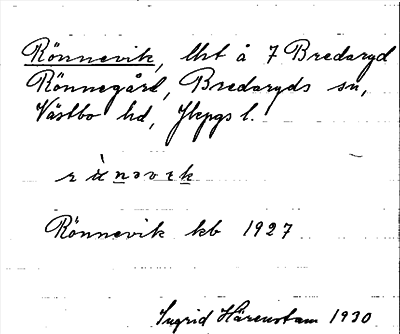 Rönnevik, lht å 7 Bredaryd
Rönnegård, Bredaryds sn,
Västbo hd, Jkpgs l.
Rönnevik kb 1927
Ingrid Härenstam 1930